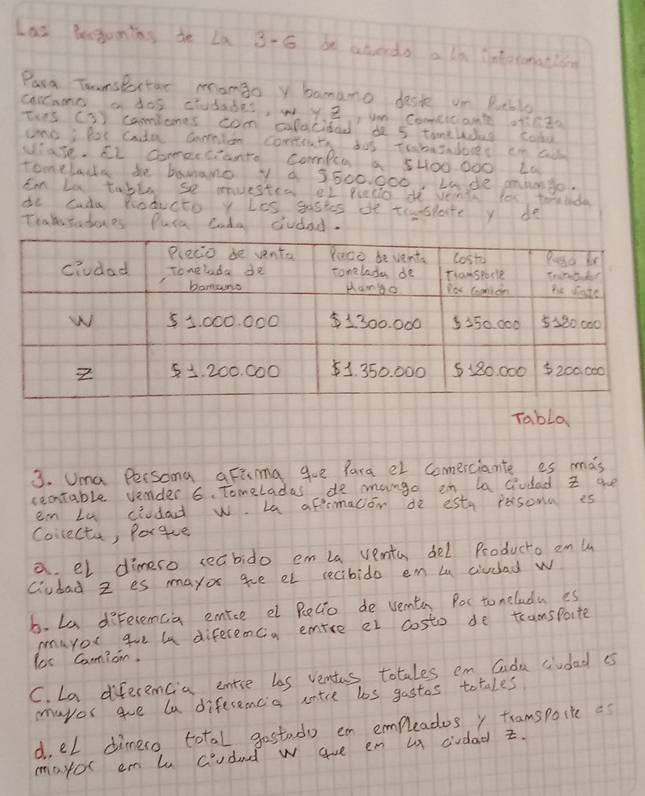 Las Preguntas de La 3-6 de acuerdo a la información
Para Transportar mango y banano desde un Pueblo
cercano a dos ciudades, W y Z, un comerciante utiliza
Tres (3) camiones con capacidad de 5 toneladas cada
uno; Por cada camión contrata dos Trabajadores en cada
Viaje. EL comerciante compra a $400.000 La
tonelada de banano y a $500.000, La de mango.
En La tabla se muestra el Precio de venta Por tonelada
de cada Producto y Los gastos de transporte y de
Trabajadores Para cada ciudad.
ciudad Precio de venta Tonelada de banano Precio de venta tonelada de Mango Costo Transporte Por Camión Pago Por Trabajador Por Viaje
W $1.000.000 $1.300.000 $150.000 $180.000
Z $1.200.000 $1.350.000 $180.000 $200.000
Tabla
3. Una Persona afirma que Para el comerciante es más
rentable vender 6. Toneladas de mango en la ciudad Z que
en La ciudad W. La afirmación de esta Persona es
Correcta, Porque
a. el dinero recibido en La venta del Producto en la
Ciudad Z es mayor que el recibido en La ciudad W
b. La diferencia entre el Precio de venta Por tonelada es
mayor que la diferencia entre el costo de transporte
Por Camión.
C. La diferencia entre las ventas totales en Cada ciudad es
mayor que la diferencia entre los gastos totales
d. el dinero total gastado en empleados y transporte es
mayor en La Ciudad W que en La ciudad Z.